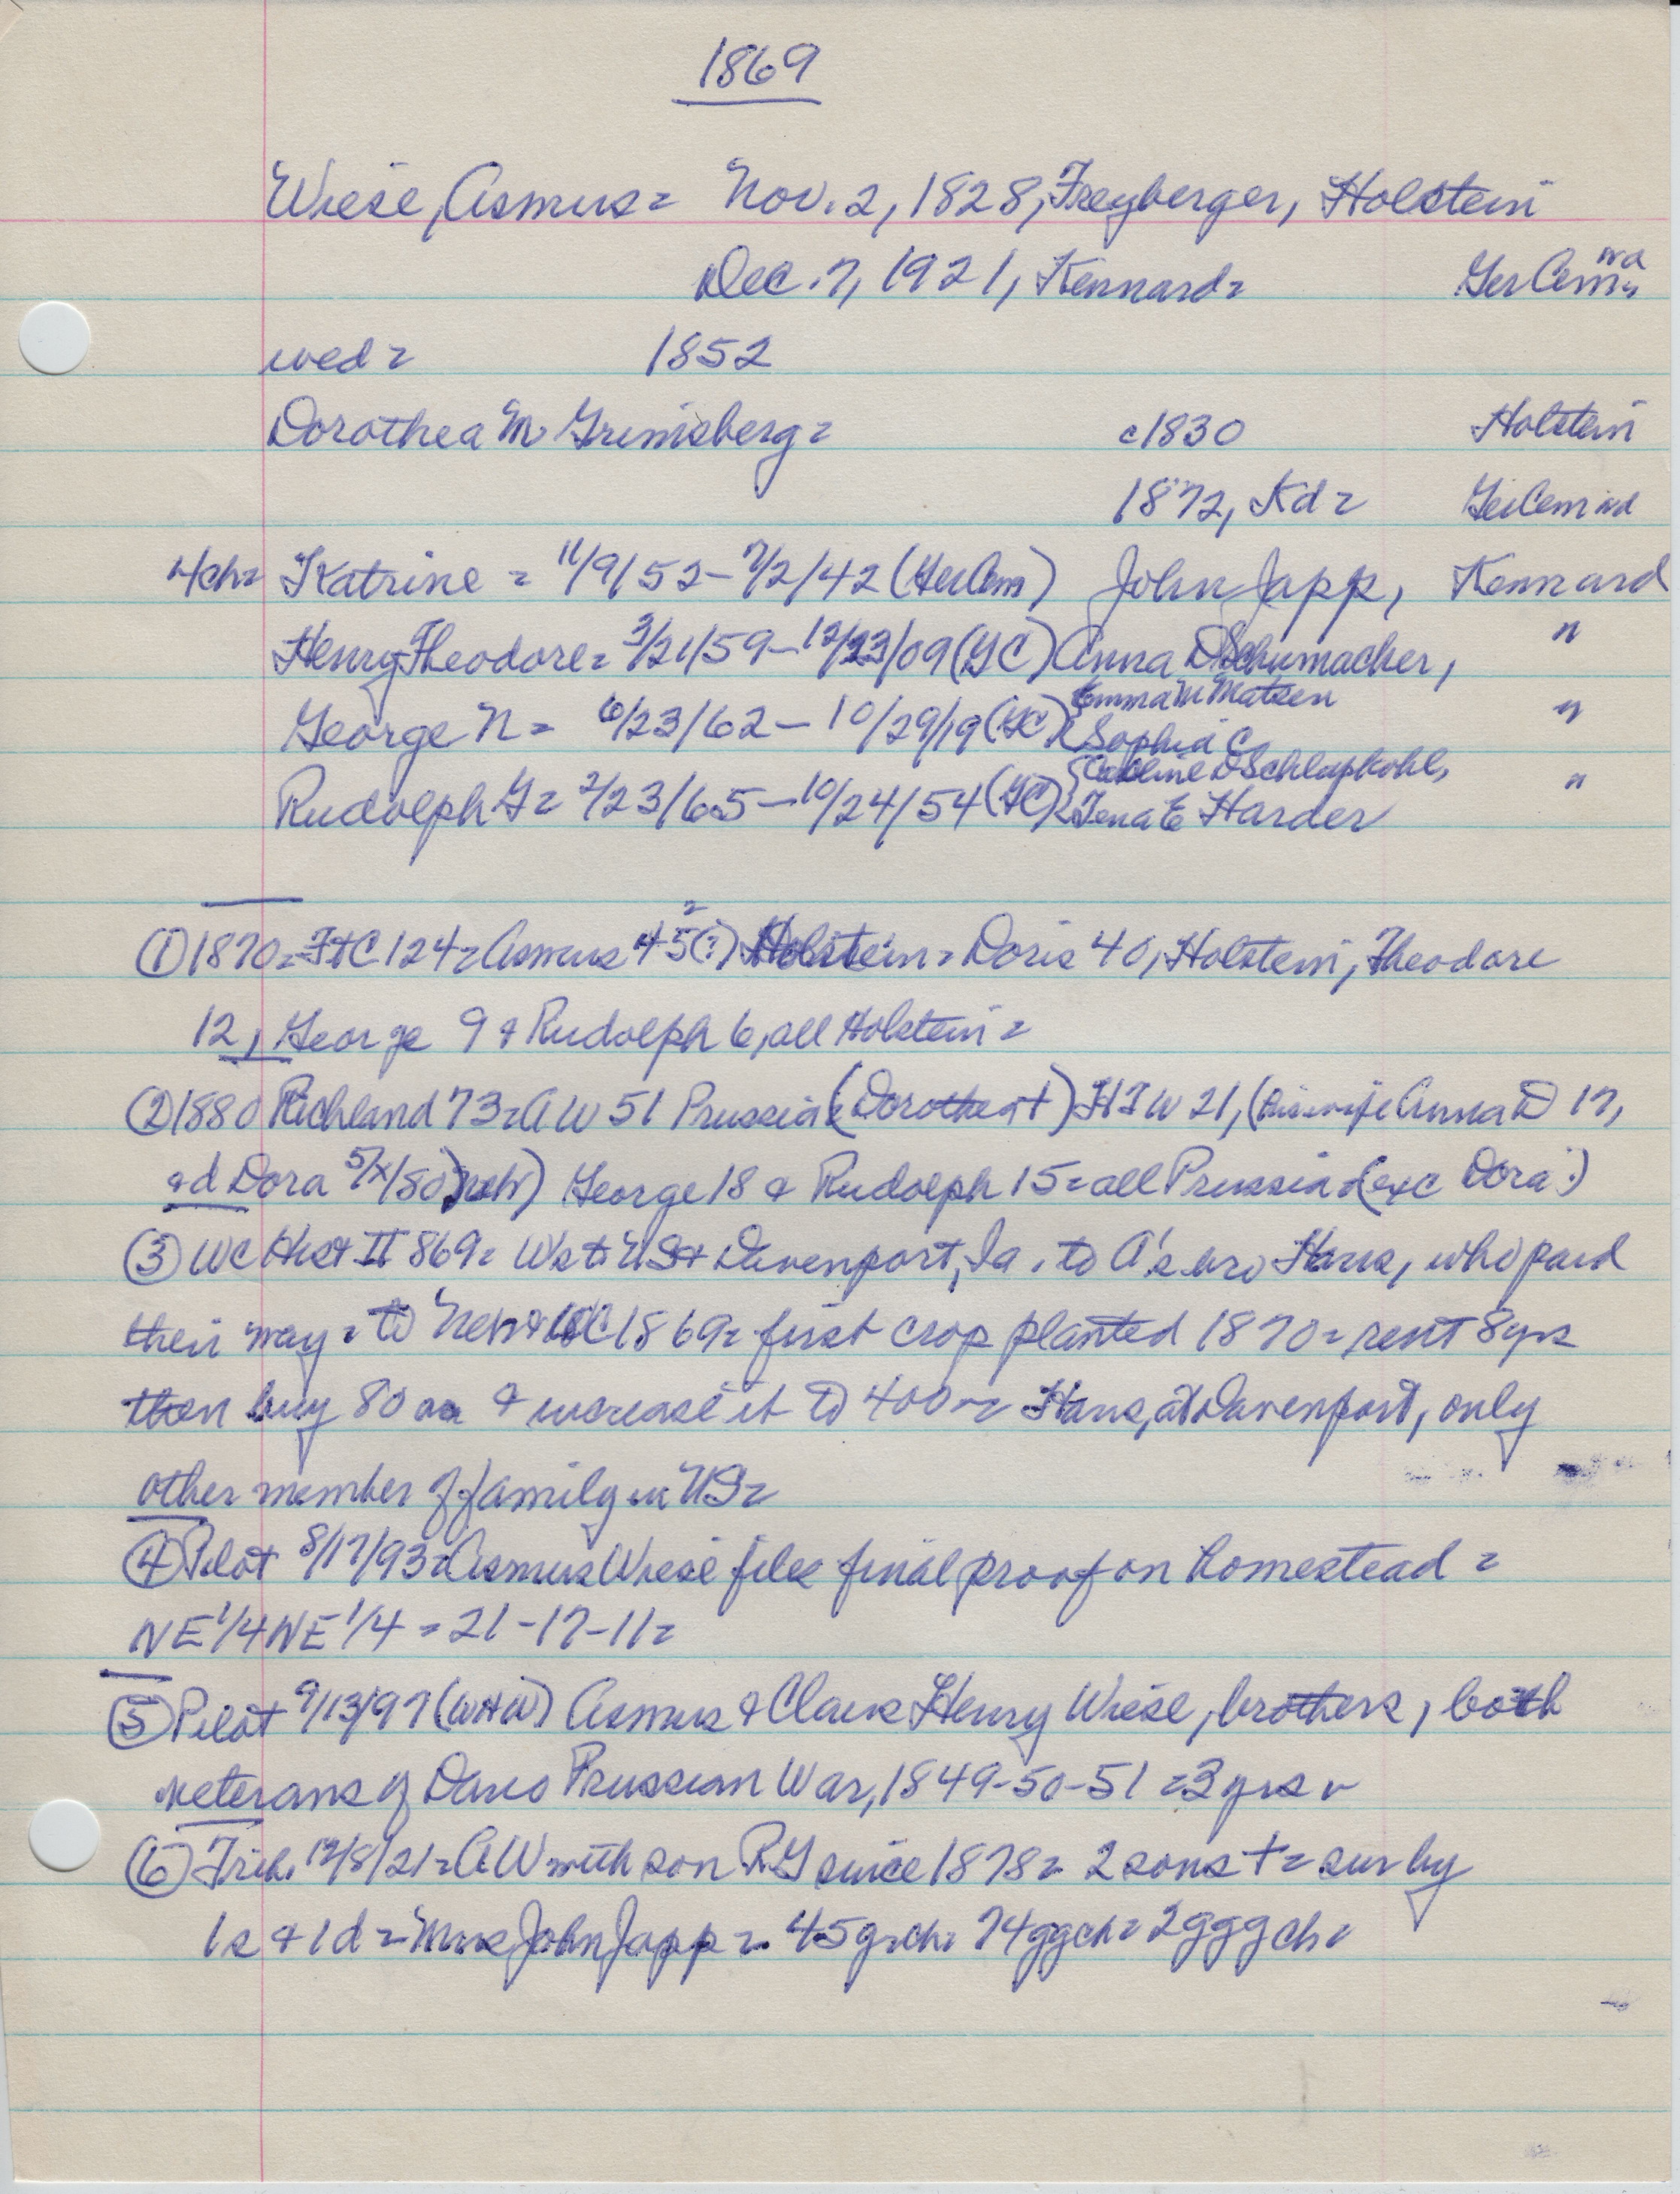 1869
Wiese, Asmus = Nov. 2, 1828, Freyberger, Holstein
Dec. 7, 1921, Kennard = Ger Cem
wed = 1852
Dorothea M Grimsberg = c1830 Holstein
1872, Kd = Ger Cem
4ch = Katrine = 11/9/52 - 7/2/42 (Ger Cem) John Japp, Kennard
Henry Theodore = 3/21/59 - 12/23/09 (GC) Anna D Schumacher, "
George N = 6/23/62 - 10/29/19 (GC) { Emma M Matzen "
Sophia C
Rudolph G = 2/23/65 - 10/24/54 (GC) { Caroline D Schlapkohl, "
Tena E Harder
① 1870 = Ft C 124 = Asmus 45 (?) Holstein = Doris 40, Holstein, Theodore
12, George 9 & Rudolph 6, all Holstein =
② 1880 Richland 73 = AW 51 Prussia (Dorothea †) HTW 21, (his wife Anna D 17,
& d Dora 5/x/80 neb) George 18 & Rudolph 15 = all Prussia = (exc Dora)
③ WC Hist II 869 = Ws to US & Davenport, Ia. to A's bro Hans, who paid
their way = to Neb & WC 1869 = first crop planted 1870 = rent 8 yrs
then buy 80 aa & increase it to 400 = Hans, at Davenport, only
other member of family in US =
④ Pilot 8/17/93 = Asmus Wiese files final proof on homestead =
NE 1/4 NE 1/4 = 21-17-11 =
⑤ Pilot 9/13/97 (WHW) Asmus & Claus Henry Wiese, brothers, both
veterans of Dano Prussian War, 1849-50-51 = 3 yrs
⑥ Trib. 12/8/21 = AW with son RG since 1878 = 2 sons † = sur by
1s & 1d = Mrs John Japp = 45 grch = 74 ggch = 2 gggch =